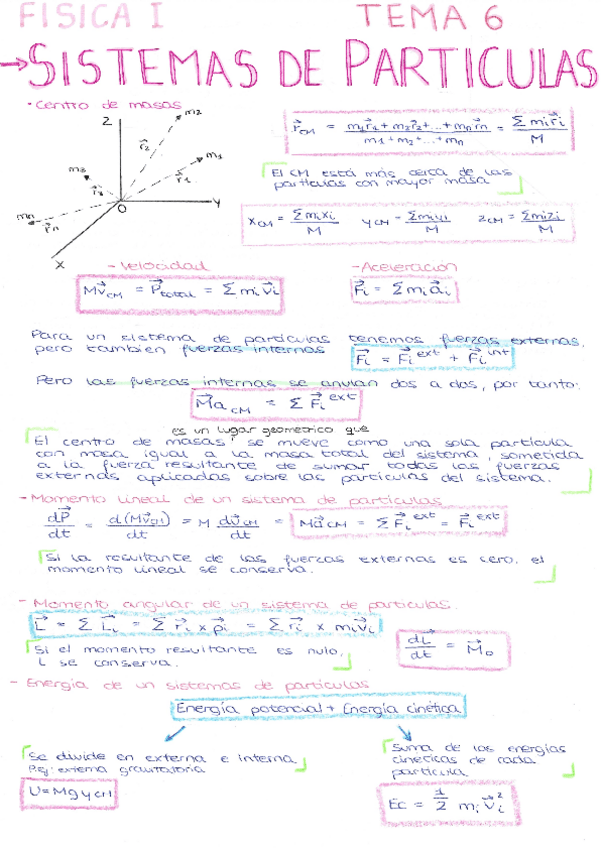 FISICA I TEMA 6
→SISTEMAS DE PARTICULAS
· Centro de masas
Z
m2
r⃗2
m1
r⃗1
m3
r⃗3
mn
r⃗n
O
Y
X
r⃗CM = m1r⃗1+m2r⃗2+...+mnr⃗n / m1+m2+...+mn = Σmir⃗i / M
El CM está más cerca de las
partículas con mayor masa
XCM = Σmixi / M yCM = Σmiyi / M zCM = Σmizi / M
- Velocidad - Aceleración
Mv⃗CM = P⃗total = Σmiv⃗i F⃗i = Σmia⃗i
Para un sistema de partículas tenemos fuerzas externas,
pero tambien fuerzas internas F⃗i = F⃗i ext + F⃗i int
Pero las fuerzas internas se anulan dos a dos, por tanto:
M⃗aCM = ΣF⃗i ext
es un lugar geometrico que
El centro de masas' se mueve como una sola partícula
con masa igual a la masa total del sistema, sometida
a la fuerza resultante de sumar todas las fuerzas
externas aplicadas sobre las partículas del sistema.
- Momento lineal de un sistema de partículas
dP⃗/dt = d(Mv⃗CM)/dt = M dv⃗CM/dt = Ma⃗CM = ΣF⃗i ext = F⃗i ext
Si la resultante de las fuerzas externas es cero, el
momento lineal se conserva.
- Momento angular de un sistema de partículas.
L⃗ = ΣL⃗i = Σr⃗i x p⃗i = Σr⃗i x miv⃗i
Si el momento resultante es nulo,
L se conserva.
dL⃗/dt = M⃗o
- Energía de un sistemas de partículas
Energía potencial + Energía cinética
Se divide en externa e interna.
Pej: externa gravitatoria
U=MgyCM
Suma de las energías
cineticas de cada
partícula.
Ec = 1/2 miv⃗i²